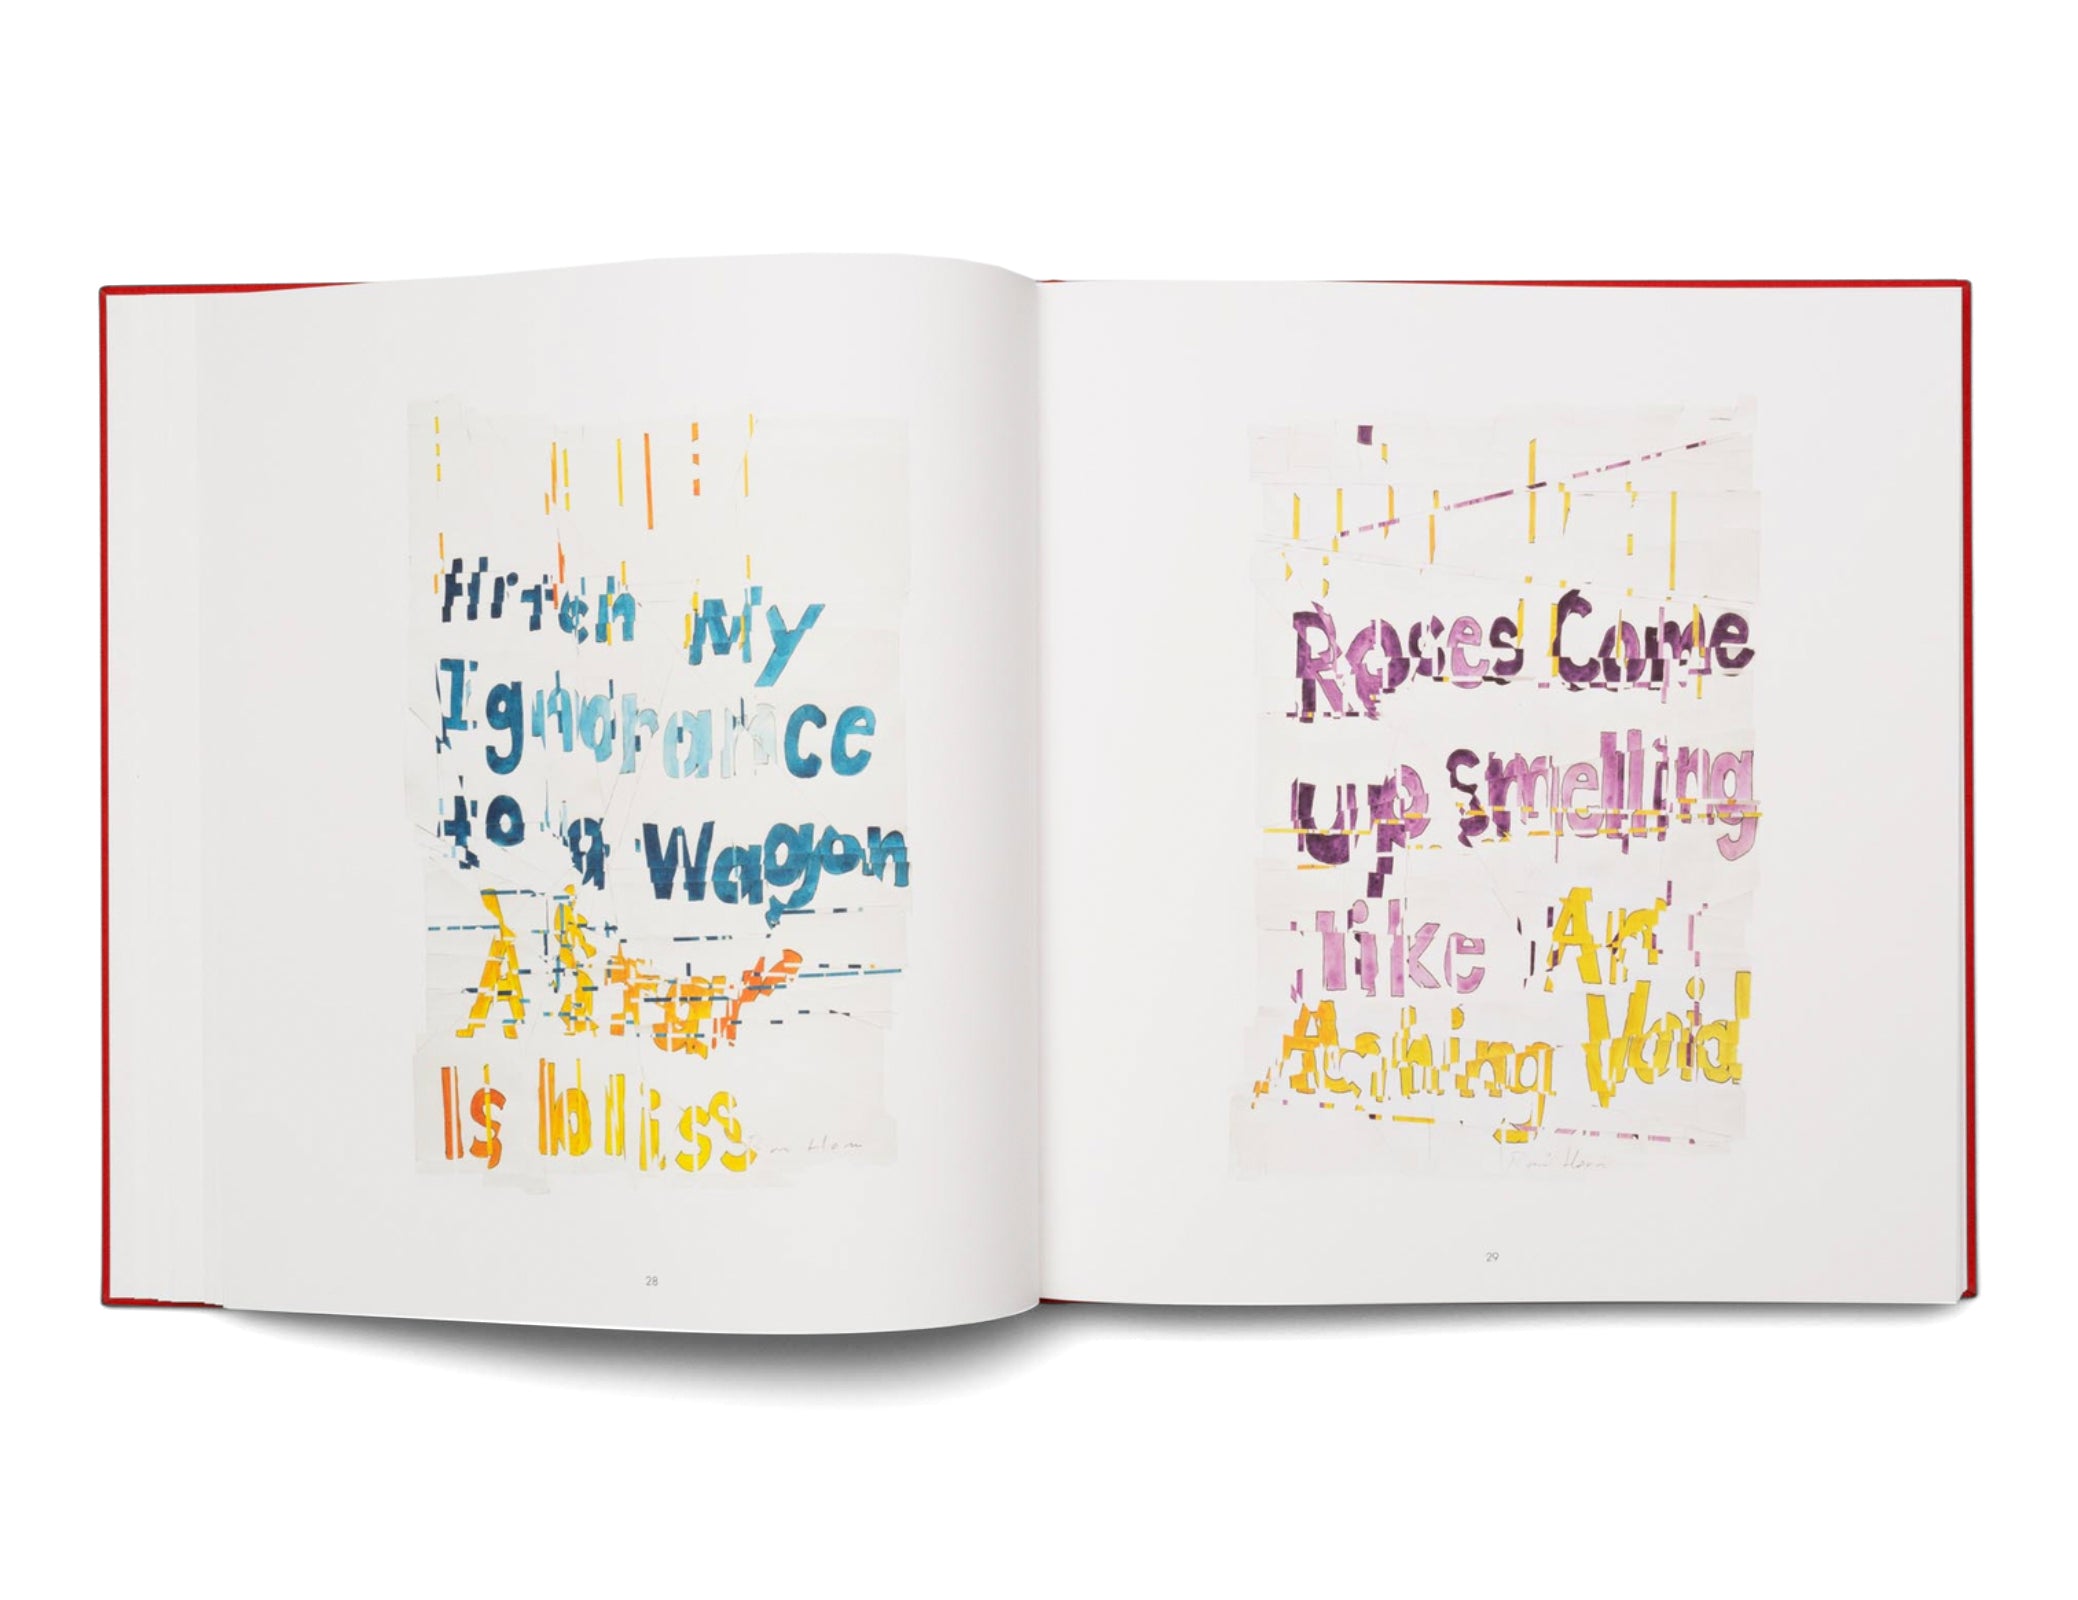 Hitch My
Ignorance
to a Wagon
A Star
Is bliss
Roni Horn
28
Roses Come
up smelling
like An
Aching Void
Roni Horn
29